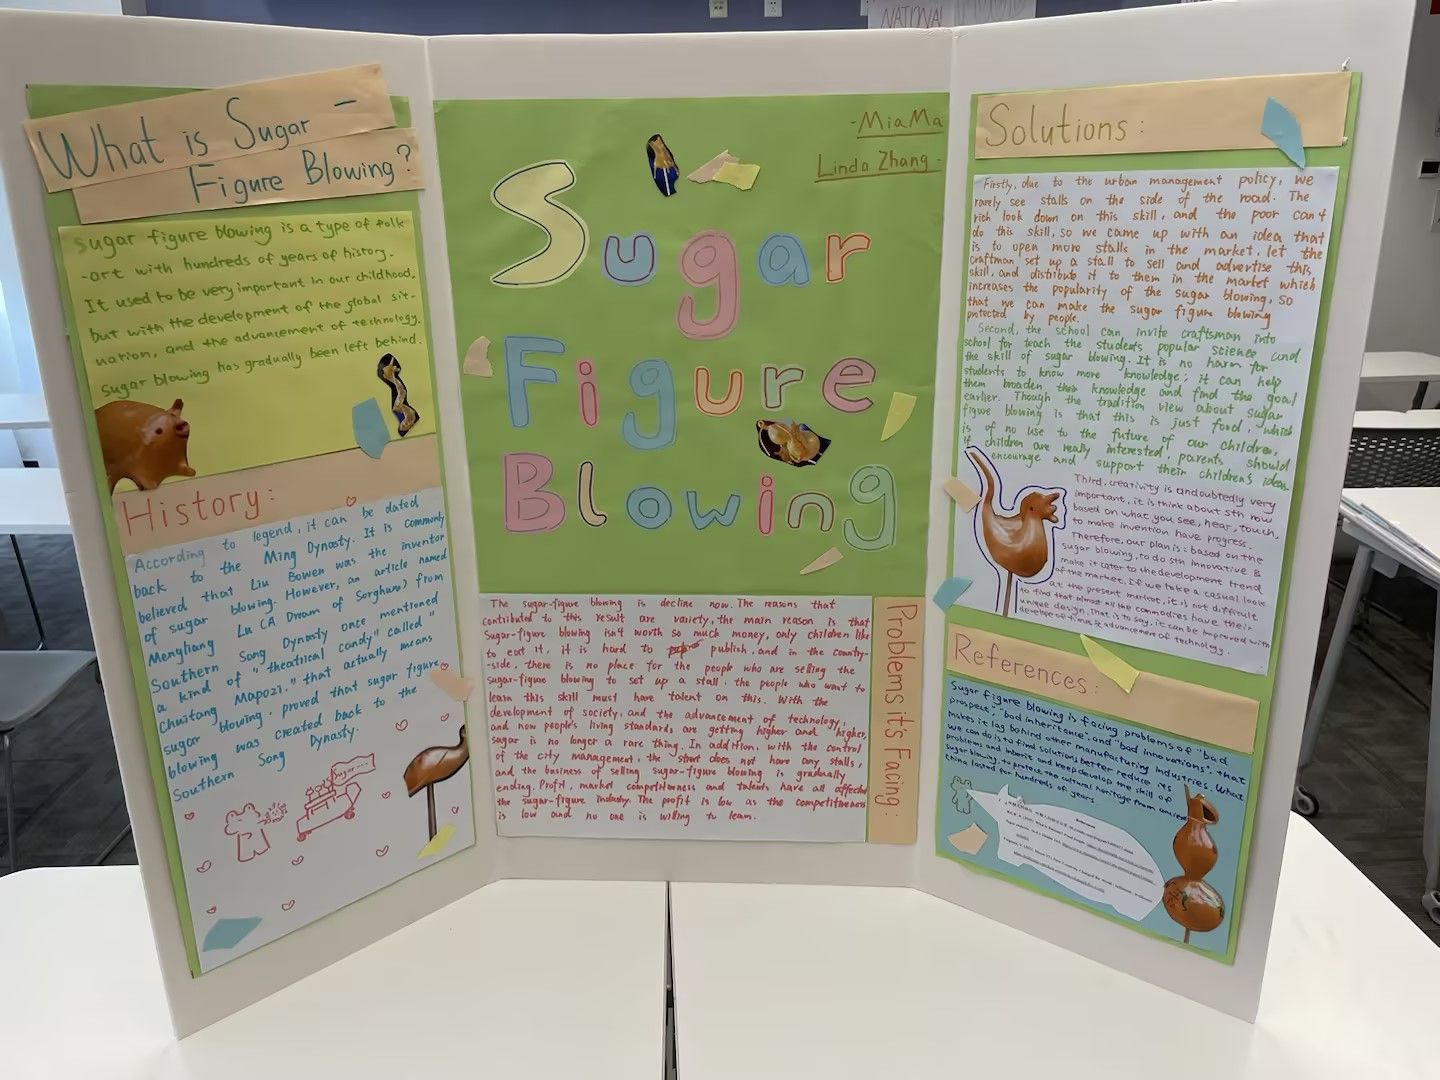 NATIONAL
What is Sugar -
Figure Blowing?
Sugar figure blowing is a type of folk
-art with hundreds of years of history.
It used to be very important in our childhood,
but with the development of the global sit-
uation, and the advancement of technology.
Sugar blowing has gradually been left behind.
History:
According to legend, it can be dated
back to the Ming Dynasty. It is commonly
believed that Liu Bowen was the inventor
of sugar blowing. However, an article named
Mengliang Lu (A Dream of Sorghum) from
Southern Song Dynasty once mentioned
a kind of "theatrical candy" called "
Chuitang Mapozi." that actually means
sugar blowing. proved that sugar figure
blowing was created back to the
Southern Song Dynasty.
Sugar...
-Mia Ma
Linda Zhang-
Sugar
Figure
Blowing
The sugar-figure blowing is decline now. The reasons that
contributed to this result are variety, the main reason is that
sugar-figure blowing isn't worth so much money, only children like
to eat it, it is hard to publish, and in the country-
-side, there is no place for the people who are selling the
sugar-figure blowing to set up a stall. the people who want to
learn this skill must have talent on this. With the
development of society, and the advancement of technology,
and now people's living standards are getting higher and higher,
sugar is no longer a rare thing. In addition, with the control
of the city management, the street does not have any stalls,
and the business of selling sugar-figure blowing is gradually
ending. Profit, market competitiveness and talents have all affected
the sugar-figure industry. The profit is low as the competitiveness
is low and no one is willing to learn.
Problems it's Facing:
Solutions:
Firstly, due to the urban management policy, we
rarely see stalls on the side of the road. The
rich look down on this skill, and the poor can't
do this skill, so we came up with an idea that
is to open more stalls in the market, let the
craftman set up a stall to sell and advertise this
skill, and distribute it to them in the market which
increases the popularity of the sugar blowing, so
that we can make the sugar figure blowing
protected by people.
Second, the school can invite craftsman into
school for teach the students popular science and
the skill of sugar blowing. It is no harm for
students to know more knowledge; it can help
them broaden their knowledge and find the goal
earlier. Though the tradition view about sugar
figure blowing is that this is just food, which
is of no use to the future of our children,
if children are really interested, parents should
encourage and support their children's ideas.
Third, creativity is undoubtedly very
important, it is think about sth new
based on what you see, hear, touch,
to make invention have progress.
Therefore, our plan is: based on the
sugar blowing, to do sth innovative &
make it cater to the development trend
of the market. If we take a casual look
at the present market, it is not difficult
to find that almost all the commodities have their
unique design. That is to say, it can be improved with
develope of times & advancement of technology.
References:
Sugar figure blowing is facing problems of "bad
prospect", "bad inheritance", and "bad innovations", that
makes it lag behind other manufacturing industries. What
we can do is to find solutions better reduce its
problems and inherit and keep develop the skill of
sugar blowing, to protect the cultural heritage from ancient
china lasted for hundreds of years.
References